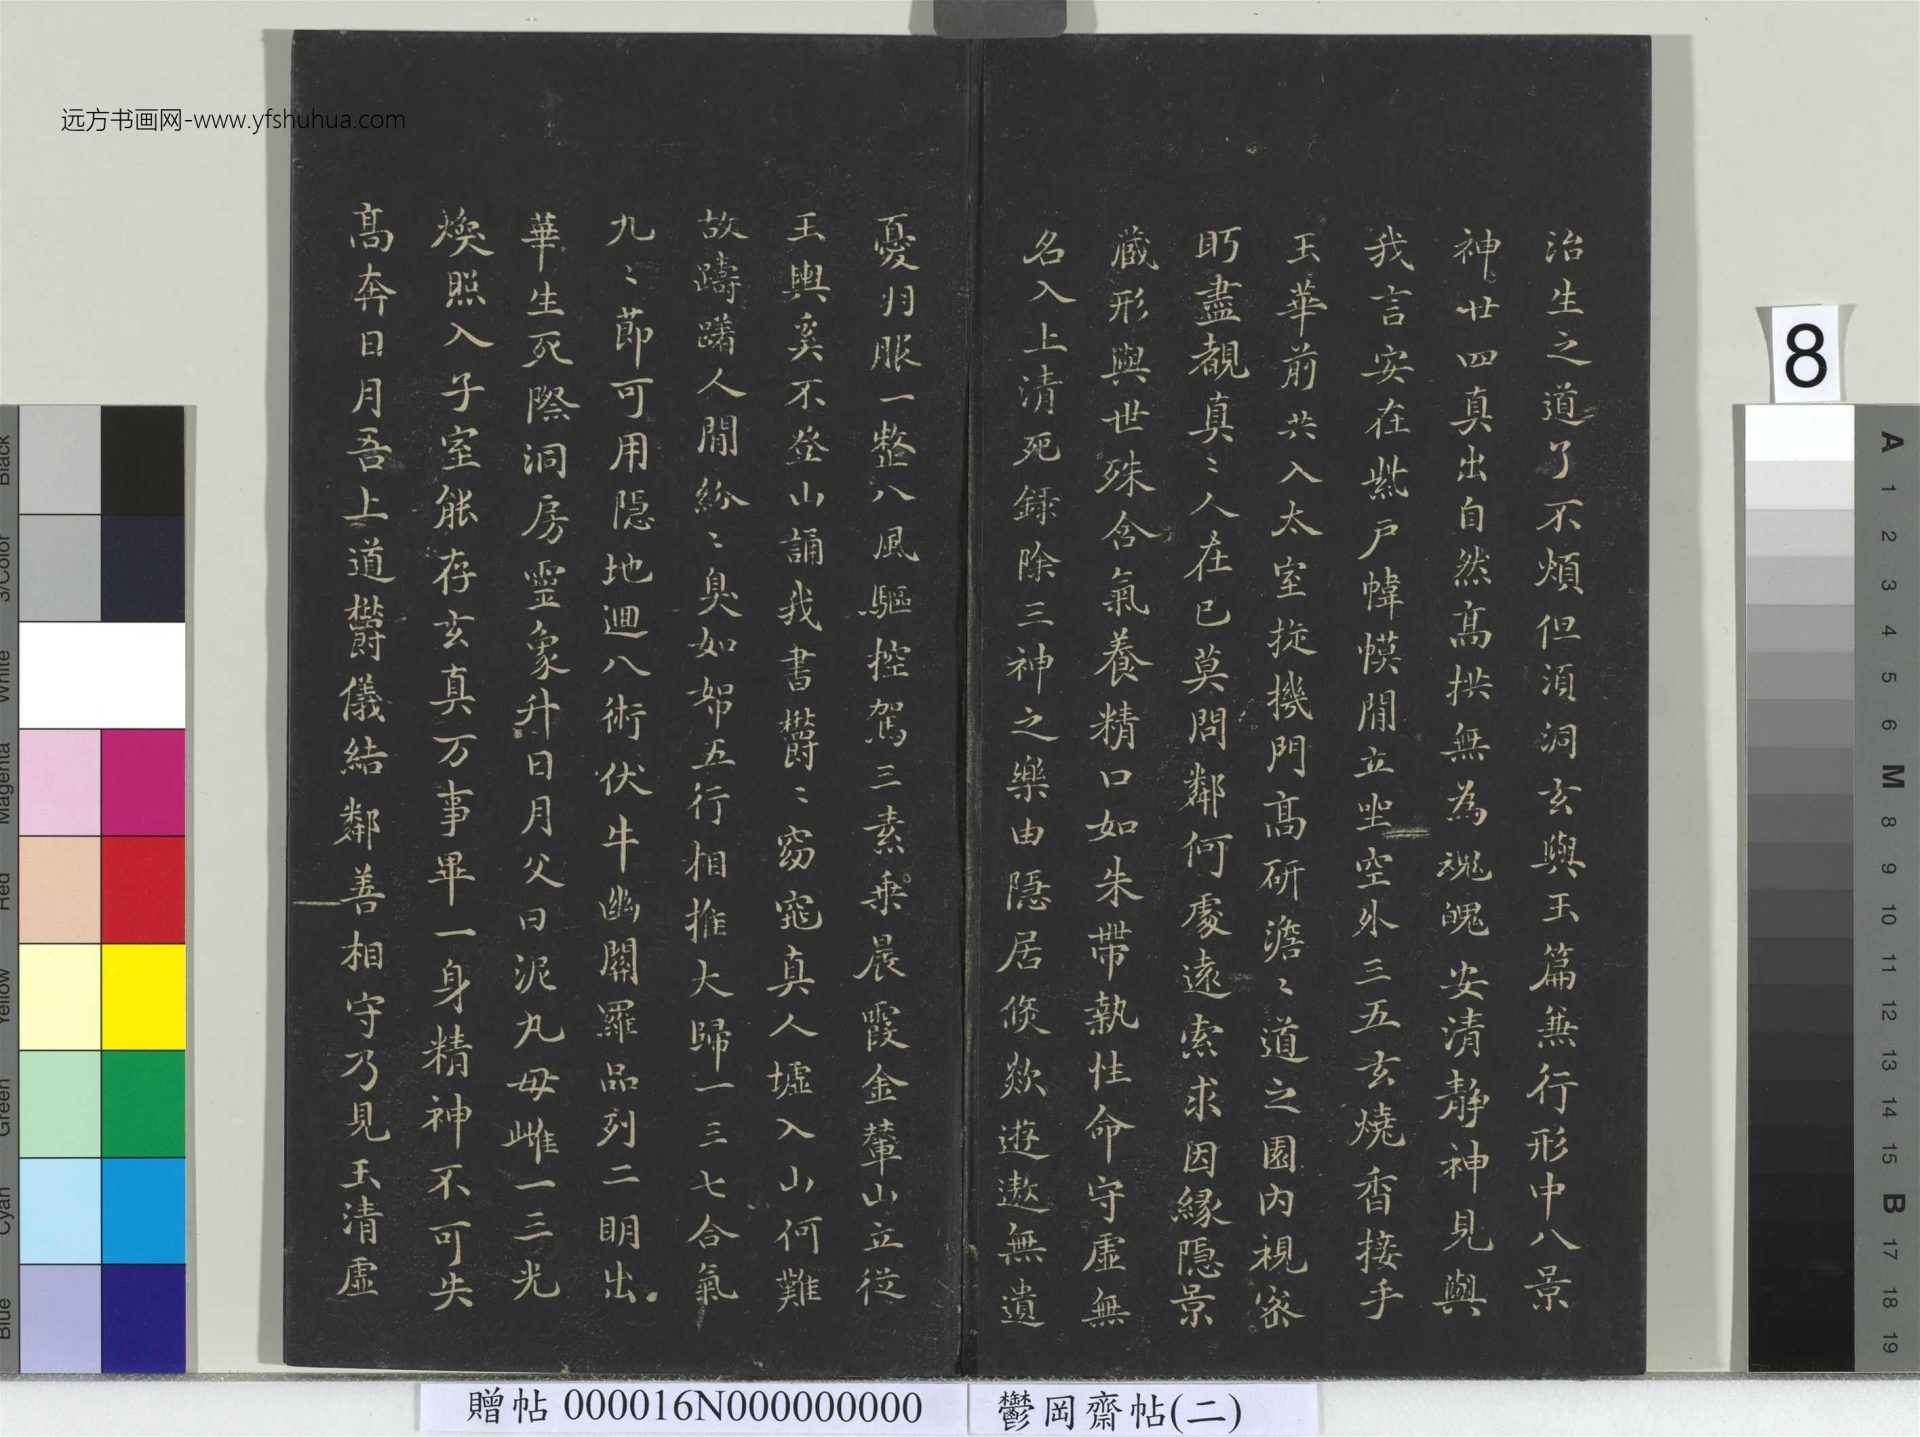 远方书画网-www.yfshuhua.com
治生之道了不煩但湏洞玄與玉篇兼行形中八景
神廿四真出自然髙拱無為魂魄安清静神見與
我言安在紫戸幃幙閒立㘴空外三五玄燒香接手
玉華前共入太室㨁機門髙研澹〻道之園内視宻
眄盡覩真〻人在已莫問鄰何處遠索求因緣隠景
藏形與世殊含氣養精口如朱帶執性命守虚無
名入上清死録除三神之樂由隠居倐欻遊遨無遺
憂羽服一整八風驅控駕三素乗晨霞金輦山立從
玉輿奚不登山誦我書欝〻窈窕真人墟入山何難
故躊躇人閒紛〻臭如帤五行相推大歸一三七合氣
九〻莭可用隠地廻八術伏牛幽闕羅品列二眀出
華生死際洞房靈象升日月父曰泥丸毋雌一三光
煥照入子室能存玄真万事畢一身精神不可失
髙奔日月吾上道欝儀結鄰善相守乃見玉清虚
8
贈帖 000016N000000000
鬱岡齋帖(二)
Black
3/Color
White
Magenta
Red
Yellow
Green
Cyan
Blue
A
1
2
3
4
5
6
M
8
9
10
11
12
13
14
15
B
17
18
19